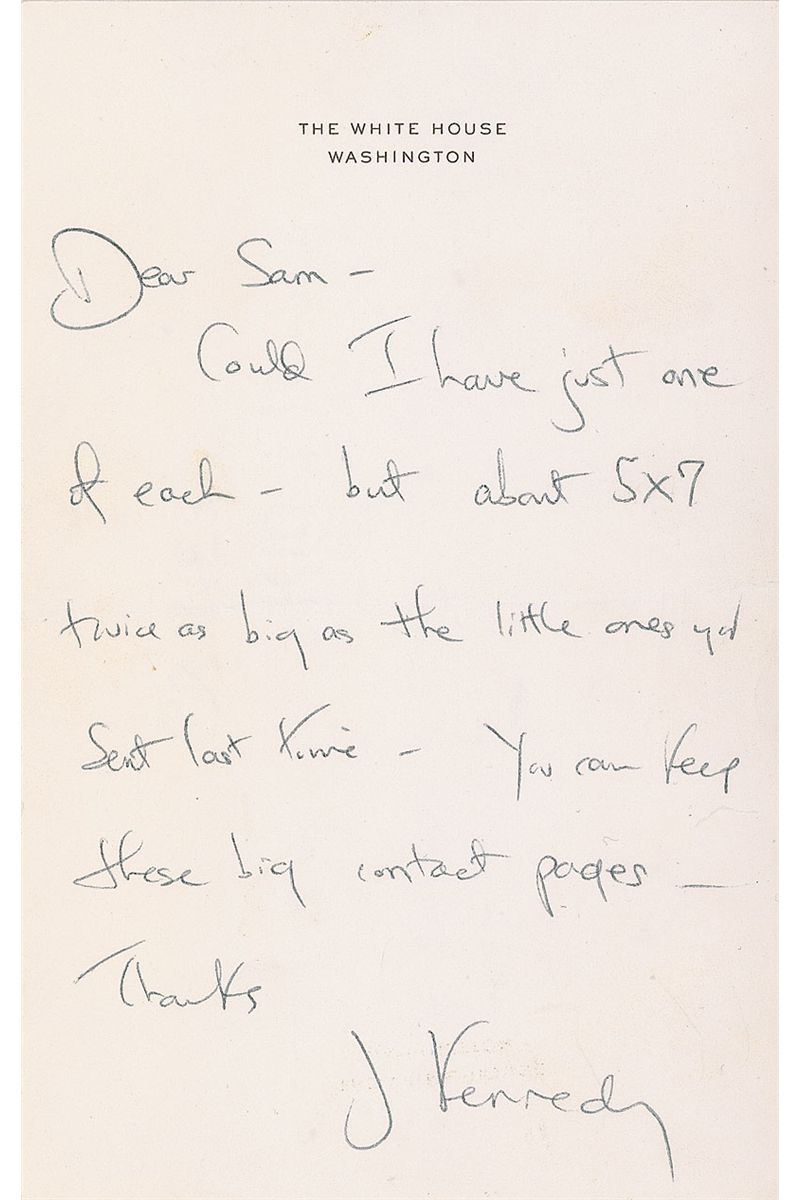 THE WHITE HOUSE
WASHINGTON
Dear Sam –
Could I have just one
of each – but about 5x7
twice as big as the little ones you
sent last time – You can keep
these big contact pages –
Thanks
J Kennedy